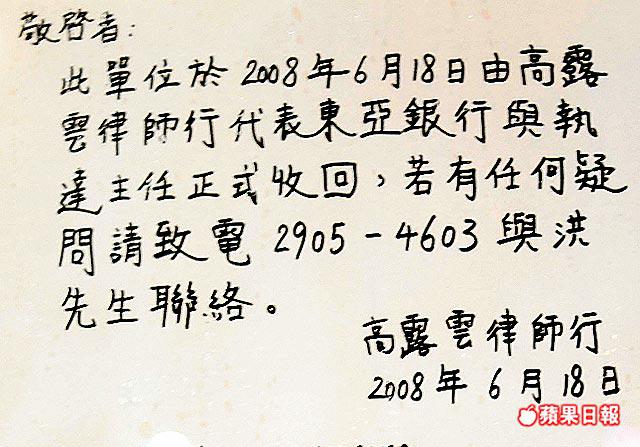 敬啓者:
此單位於2008年6月18日由高露
雲律師行代表東亞銀行與執
達主任正式收回,若有任何疑
問請致電 2905-4603與洪
先生聯絡。
高露雲律師行
2008年6月18日
蘋果日報